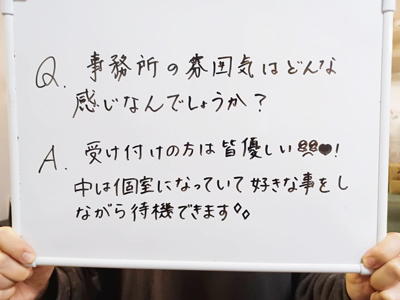 Q. 事務所の雰囲気はどんな
感じなんでしょうか？
A. 受け付けの方は皆優しい🥺❤!
中は個室になっていて好きな事をし
ながら待機できます